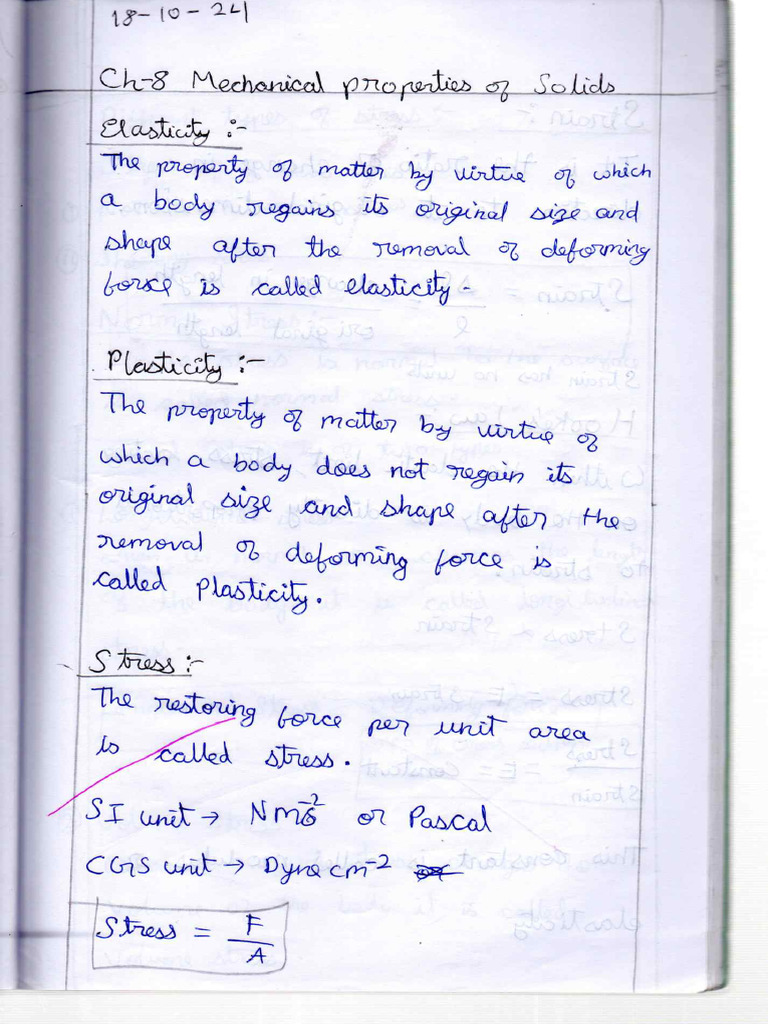 18-10-24
Ch-8 Mechanical properties of Solids
Elasticity :-
The property of matter by virtue of which
a body regains its original size and
shape after the removal of deforming
force is called elasticity -
Plasticity :-
The property of matter by virtue of
which a body does not regain its
original size and shape after the
removal of deforming force is
called Plasticity.
Stress :-
The restoring force per unit area
is called stress.
SI unit → Nm⁻² or Pascal
CGS unit → Dyne cm⁻²
Stress = F/A